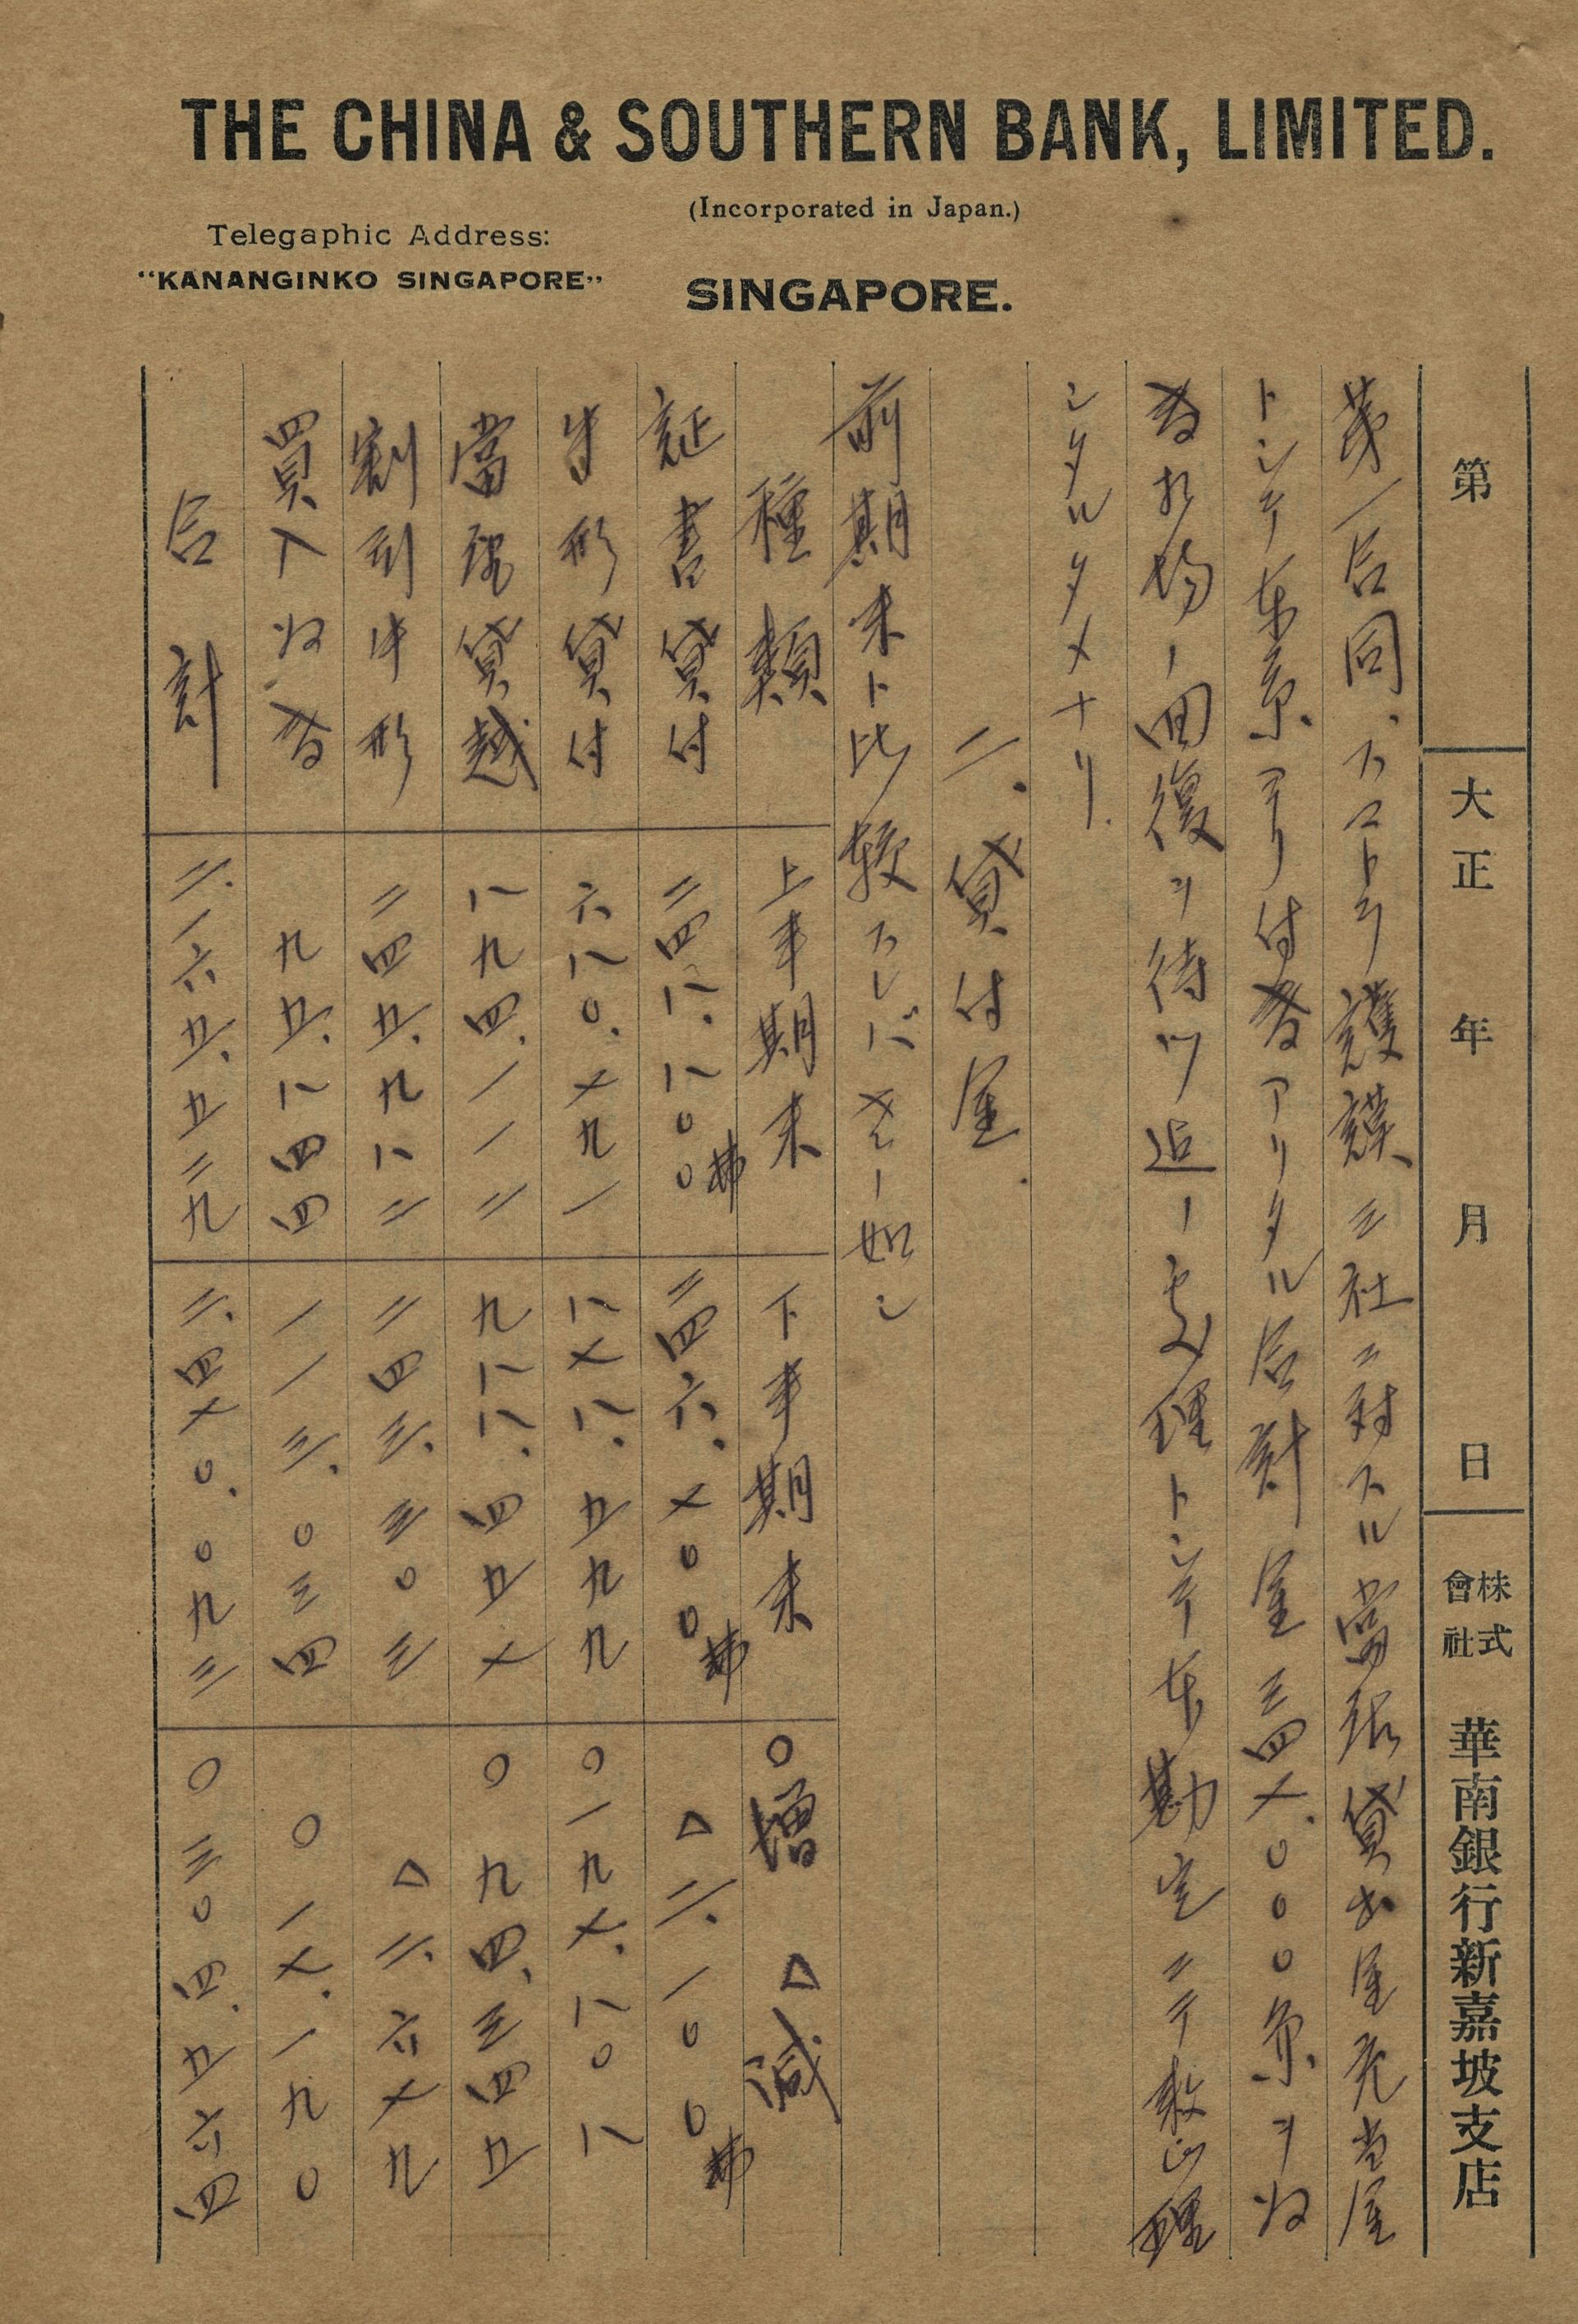 THE CHINA & SOUTHERN BANK, LIMITED.
(Incorporated in Japan.)
Telegaphic Address:
“KANANGINKO SINGAPORE”
SINGAPORE.
第 大正 年 月 日 株式會社 華南銀行新嘉坡支店
第一合同、スマトラ護謨三社ニ対スル當張貸出金元当金
トシテ東京ヨリ付替アリタル合計金三四七.〇〇〇円ヲ為
替相場ノ回復ヲ待ツ迄ノ処理トシテ本勘定ニテ整理
シタルタメナリ.
二. 貸付金.
前期末ト比較スレバ左ノ如シ
種類 上半期末 下半期末 〇増 △減
証書貸付 二四八.八〇〇弗 二四六.七〇〇弗 △二.一〇〇弗
手形貸付 六八〇.七九一 八七八.五九九 〇一九七.八〇八
當座貸越 八九四.一一二 九八八.四五七 〇九四.三四五
割引手形 二四五.九八二 二四三.三〇三 △二.六七九
買入為替 九五.八四四 一一三.〇三四 〇一七.一九〇
合計 二.一六五.五二九 二.四七〇.〇九三 〇三〇四.五六四